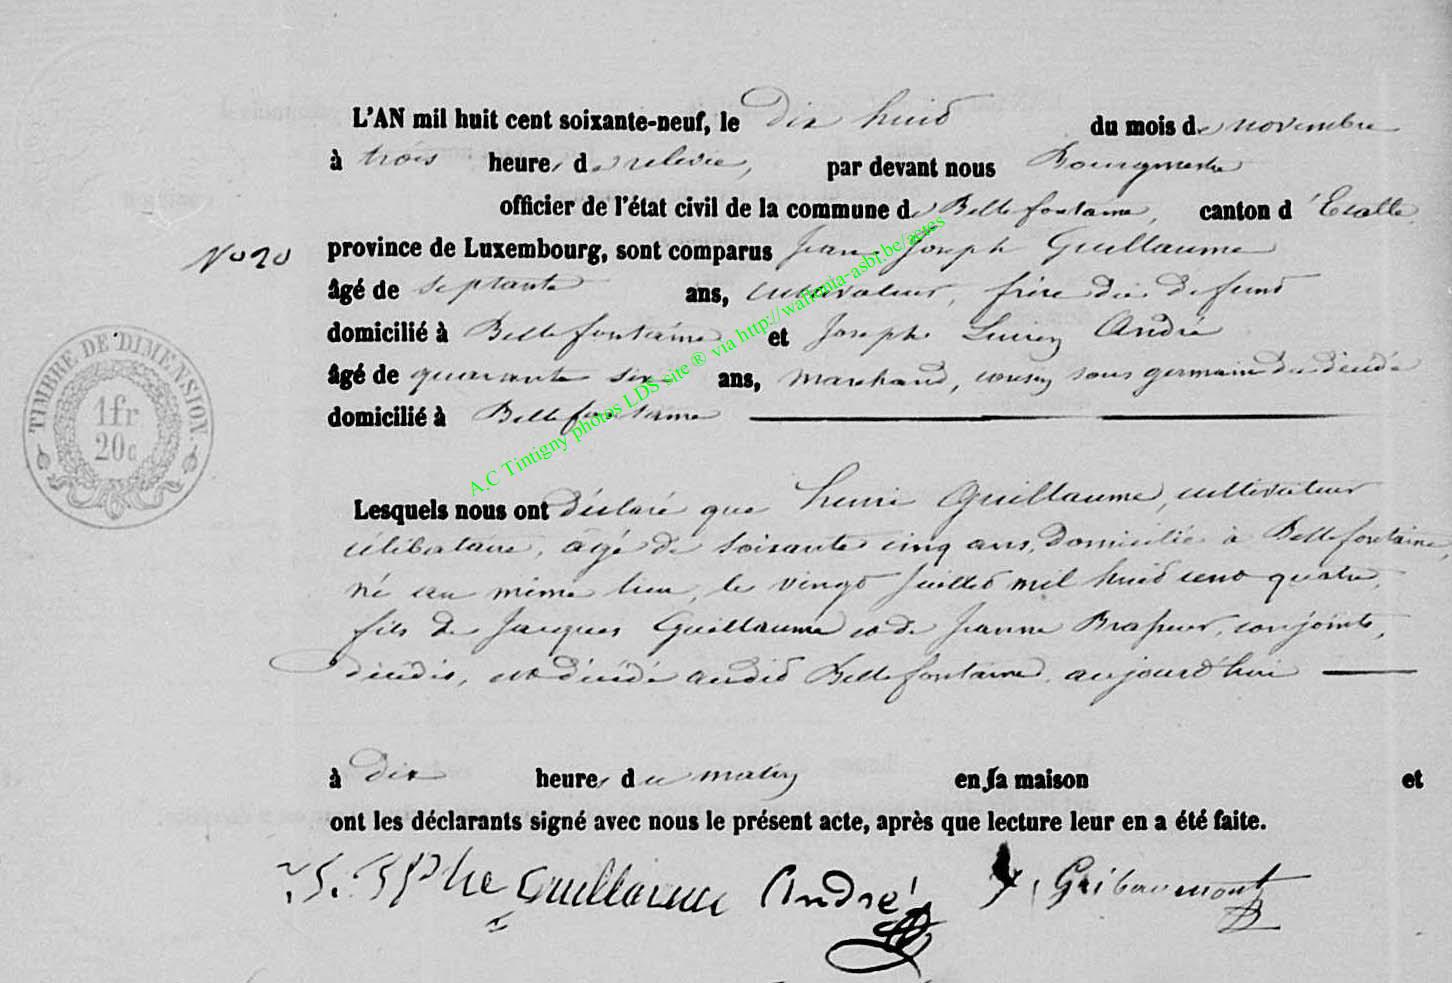 L'AN mil huit cent soixante-neuf, le dix huit du mois de novembre
à trois heures de relevée, par devant nous Bourgmestre
officier de l'état civil de la commune de Bellefontaine, canton d'Etalle,
No 20 province de Luxembourg, sont comparus Jean Joseph Guillaume
âgé de septante ans, cultivateur, frère du défunt
domicilié à Bellefontaine et Joseph Lucien André
âgé de quarante six ans, marchand, cousin sous germain du décédé
domicilié à Bellefontaine
Lesquels nous ont déclaré que henri Guillaume, cultivateur
célibataire, agé de soixante cinq ans, domicilié à Bellefontaine,
né au même lieu, le vingt juillet mil huit cent quatre,
fils de Jacques Guillaume et de Jeanne conjoints,
décédés, est décédé audit Bellefontaine, aujourd'hui
à dix heures du matin en sa maison et
ont les déclarants signé avec nous le présent acte, après que lecture leur en a été faite.
Guillaume André Gribaumont
TIMBRE DE DIMENSION.
1fr
20c
A.C Tintigny photos LDS site ® via http://wallonia-asbl.be/actes